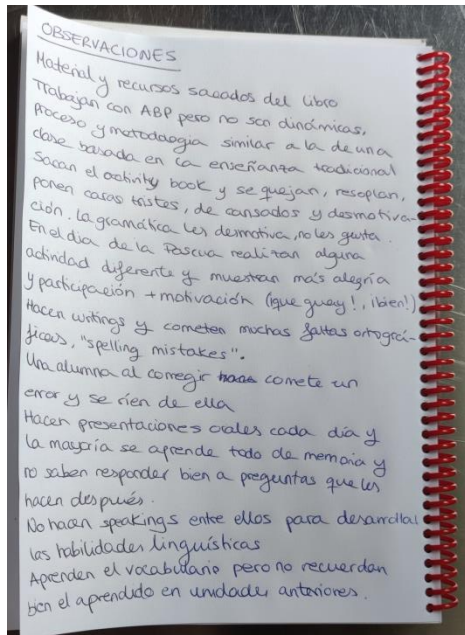 OBSERVACIONES
Material y recursos sacados del libro
Trabajan con ABP pero no son dinámicas,
proceso y metodología similar a la de una
clase basada en la enseñanza tradicional
Sacan el activity book y se quejan, resoplan,
ponen caras tristes, de cansados y desmotiva-
ción. La gramática les desmotiva, no les gusta.
En el día de la Pascua realizan alguna
actividad diferente y muestran más alegría
y participación + motivación (¡que guay!, ¡bien!)
Hacen writings y cometen muchas faltas ortográ-
ficas, "spelling mistakes".
Una alumna al corregir comete un
error y se ríen de ella
Hacen presentaciones orales cada día y
la mayoría se aprende todo de memoria y
no saben responder bien a preguntas que les
hacen después.
No hacen speakings entre ellos para desarrollar
las habilidades lingüísticas
Aprenden el vocabulario pero no recuerdan
bien el aprendido en unidades anteriores.